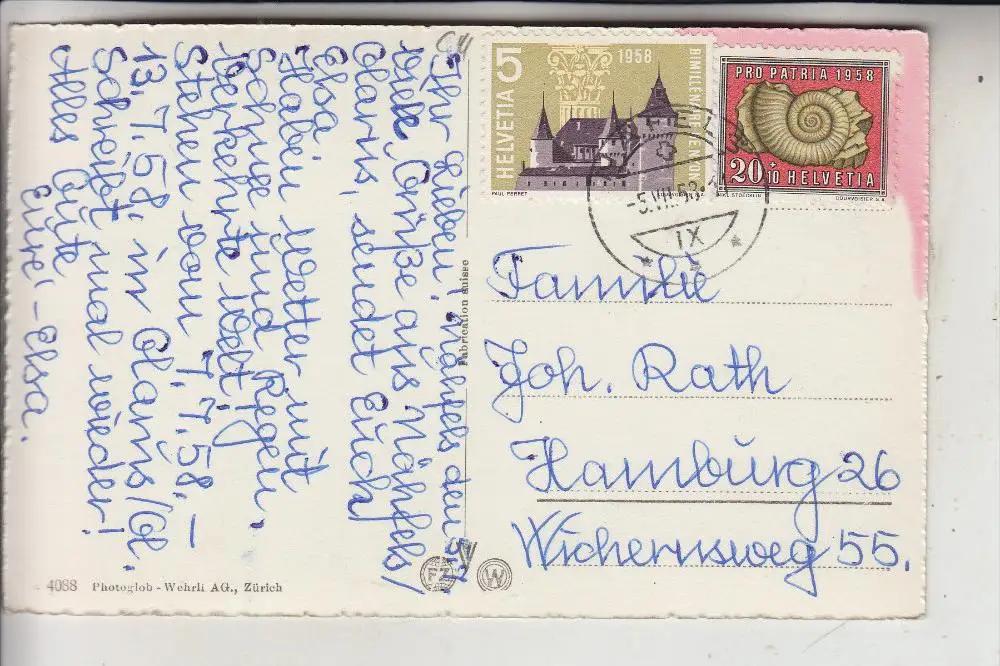 Ihr Lieben! Näfels den 5.7.
viele Grüße aus Näfels/
Glarus, sendet Euch
Elsa.
Haben Wetter mit
Schnee und Regen.
Verkehrte Welt!
Stehen vom 7.7.58.–
13.7.58. in Glarus/Gl.
Schreibt mal wieder!
Alles Gute
Eure – Elsa.
5
1958
HELVETIA
BIMILLENAIRE DE NYON
PAUL PERRET
PRO PATRIA 1958
20+10 HELVETIA
COURVOISIER S.A.
-5.VII.58.
IX
Familie
Joh. Rath
Hamburg 26
Wichernsweg 55.
Fabrication suisse
4088 Photoglob - Wehrli AG., Zürich
W